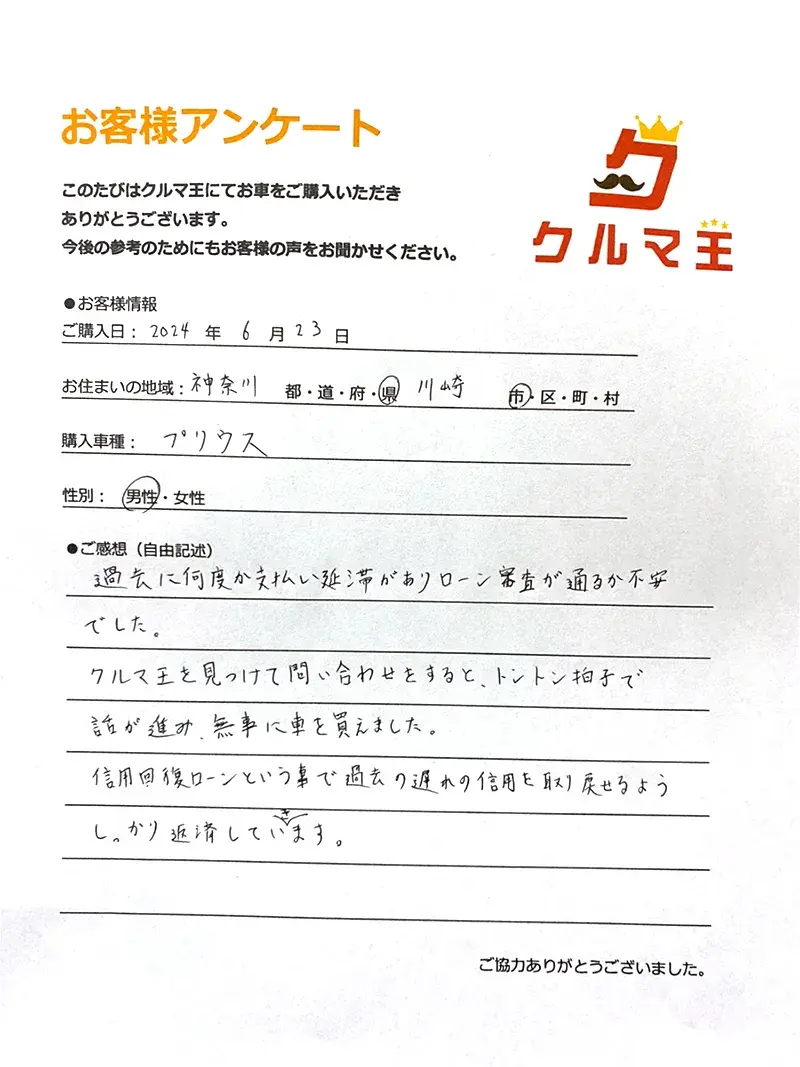 お客様アンケート
このたびはクルマ王にてお車をご購入いただき
ありがとうございます。
今後の参考のためにもお客様の声をお聞かせください。
ク
クルマ王
●お客様情報
ご購入日：2024 年 6 月 23 日
お住まいの地域：神奈川 都・道・府・県 川崎 市・区・町・村
購入車種： プリウス
性別： 男性・女性
●ご感想（自由記述）
過去に何度か支払い延滞がありローン審査が通るか不安
でした。
クルマ王を見つけて問い合わせをすると、トントン拍子で
話が進み、無事に車を買えました。
信用回復ローンという事で過去の遅れの信用を取り戻せるよう
しっかり返済していきます。
ご協力ありがとうございました。